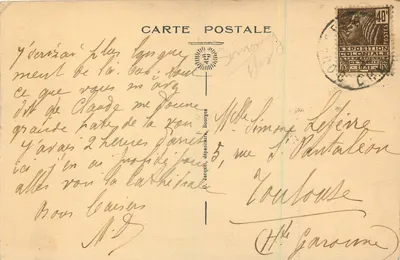 CARTE POSTALE
J'écrirai plus longue
ment de là bas. tout
ce que vous m'avez
dit de Claude me donne
grande hâte de la voir
J'avais 2 heures d'arrêt
ici j'en ai profité pour
aller voir la cathédrale
Bons baisers
M D
Melle Simone Lefèvre
5, rue St Pantaléon
Toulouse
(Hte Garonne)
40c
EXPOSITION
COLONIALE